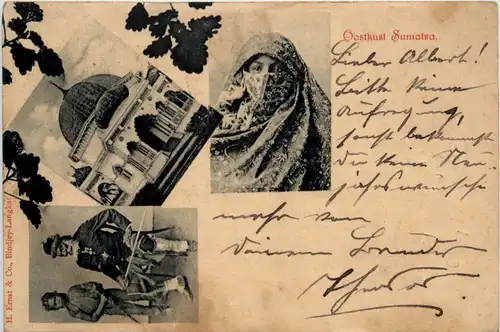 Oostkust Sumatra.
Lieber Albert!
Bitte keine
Aufregung,
sonst bekommst
Du keine Neu-
jahrswünsche
mehr von
deinem Bruder
Theodor
H. Ernst & Co., Bindjey-Langkat